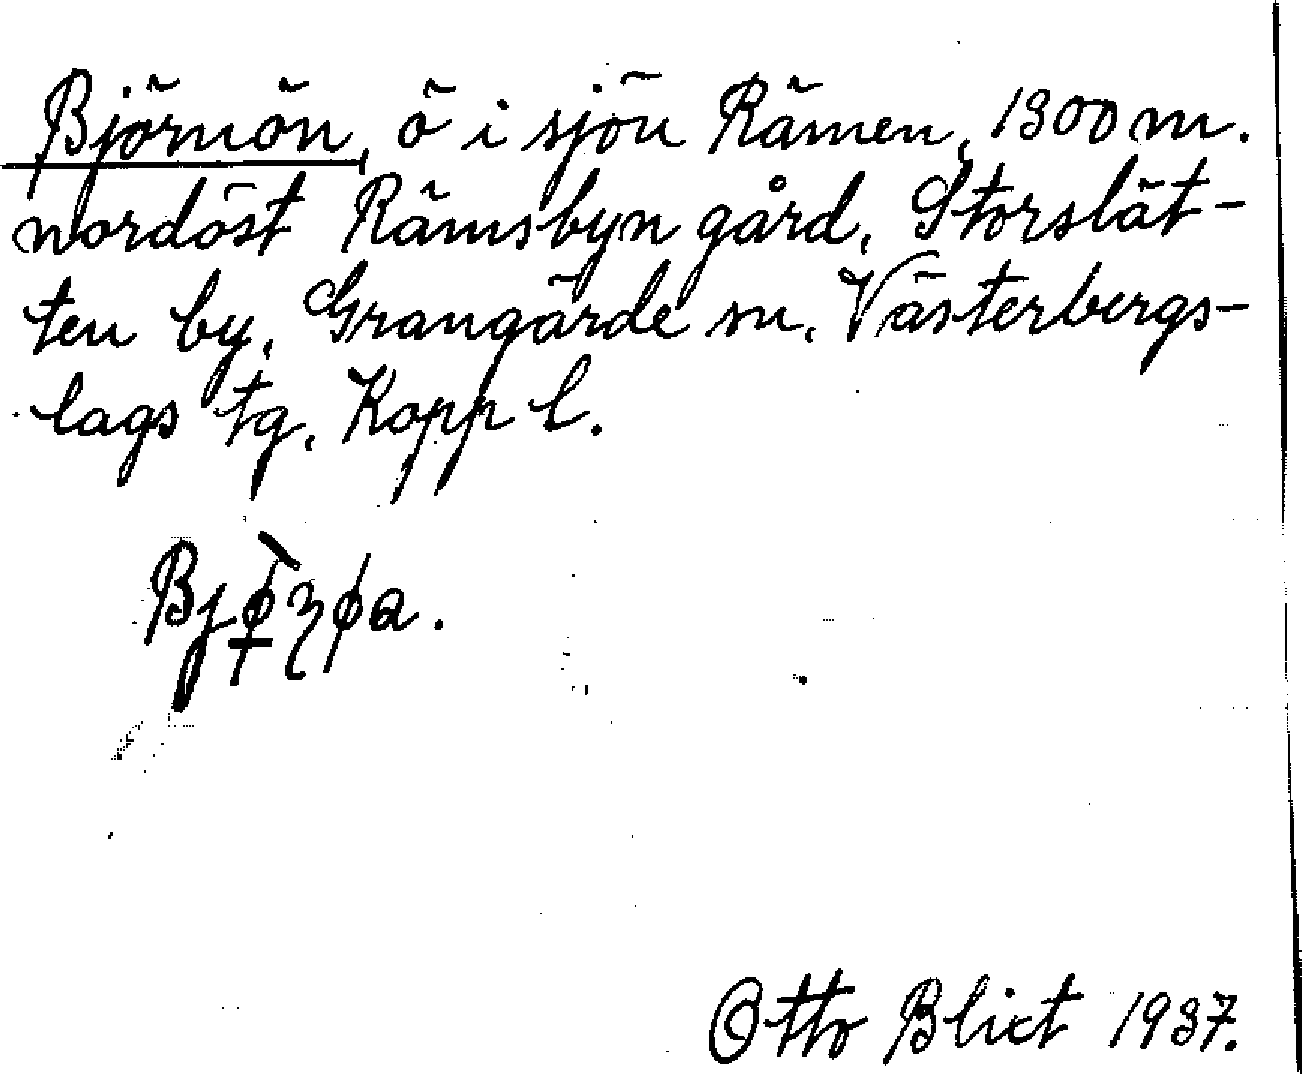 Björnön, ö i sjön Rämen, 1300 m.
nordöst Rämsbyn gård, Storslät-
ten by, Grangärde sn. Västerbergs-
lags tg, Kopp l.
Otto Blixt 1937.